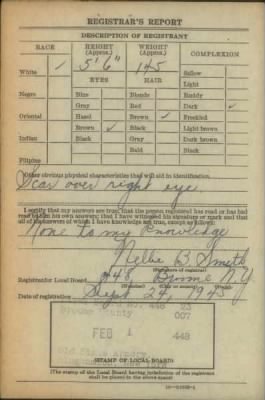 REGISTRAR'S REPORT
DESCRIPTION OF REGISTRANT
RACE HEIGHT (Approx.) WEIGHT (Approx.) COMPLEXION
White ✓ 5' 6" 145 Sallow
EYES HAIR Light
Negro Blue Blonde Ruddy
Gray Red Dark ✓
Oriental Hazel Brown ✓ Freckled
Brown ✓ Black Light brown
Indian Black Gray Dark brown
Bald Black
Filipino
Other obvious physical characteristics that will aid in identification
Scar over right eye
I certify that my answers are true; that the person registered has read or has had
read to him his own answers; that I have witnessed his signature or mark and that
all of his answers of which I have knowledge are true, except as follows:
None to my knowledge
Nellie B. Smith
(Signature of registrar)
Registrar for Local Board 448 Broome N.Y
(Number) (City or county) (State)
Date of registration Sept 24, 1945
448 23
Broome County 007
FEB 1 448
STAMP OF LOCAL BOARD
(The stamp of the Local Board having jurisdiction of the registrant
shall be placed in the above space.)